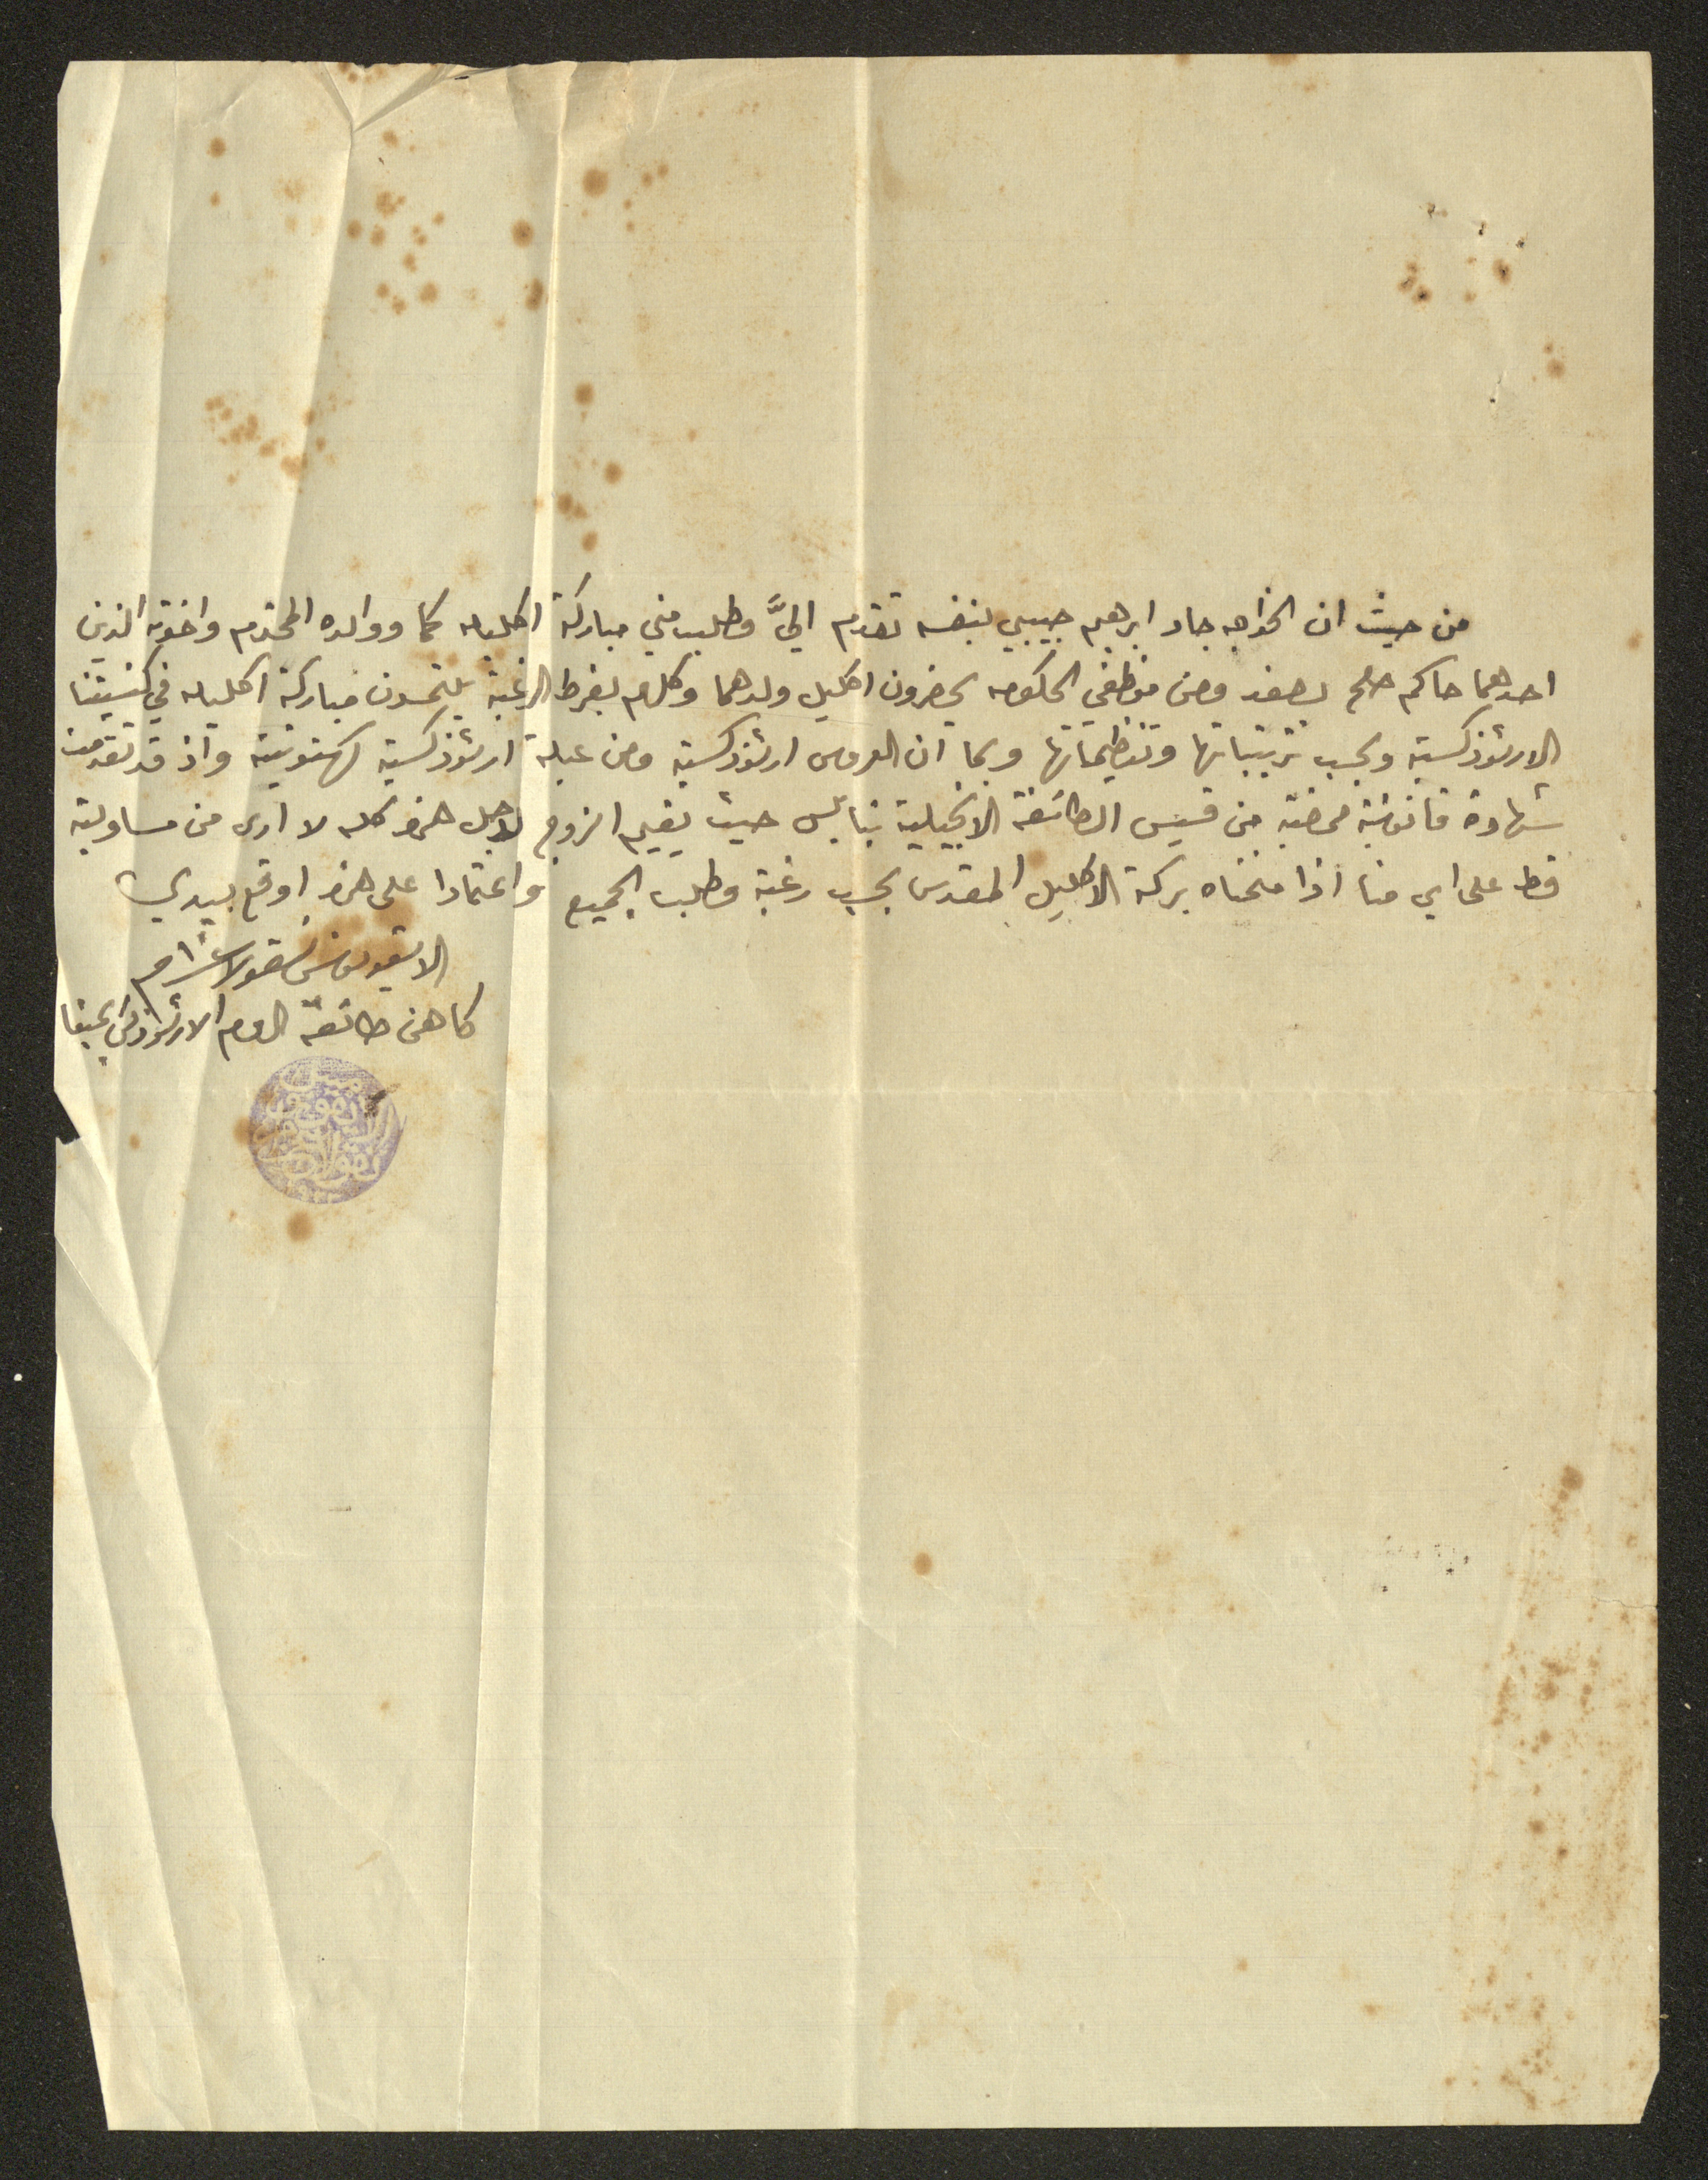 من حيث ان الخواجه جاد ابرهيم حبيبي بنفسه تقدم اليَّ وطلب مني مباركة اكليله كما ووالده المحترم واخوته الذين
احدهما حاكم صلح بصفد ومن موظفي الحكومه يحضرون اكليل ولدهما وكلهم بفرط الرغبة يلتمسون مباركة اكليله في كنيستنا
الارثوذكسية وبحسب ترتيباتها وتنظيماتها وبما ان العروس ارثوذكسية ومن عيلة ارثوذكسية كهنوتية واذ قد تقدمت
شهادة قانونية ممضية من قسيس الطائفة الانجيلية بنابلس حيث يقيم الزوج لاجل هذا كله لا ارى من مساولية
قط على اي منا اذا منحناه بركة الاكليل المقدس بحسب رغبة وطلب الجميع واعتمادا على هذا اوقع بيدي
الايقونومس نقولا
كاهن طائفة الروم الارثوذكس بحيفا